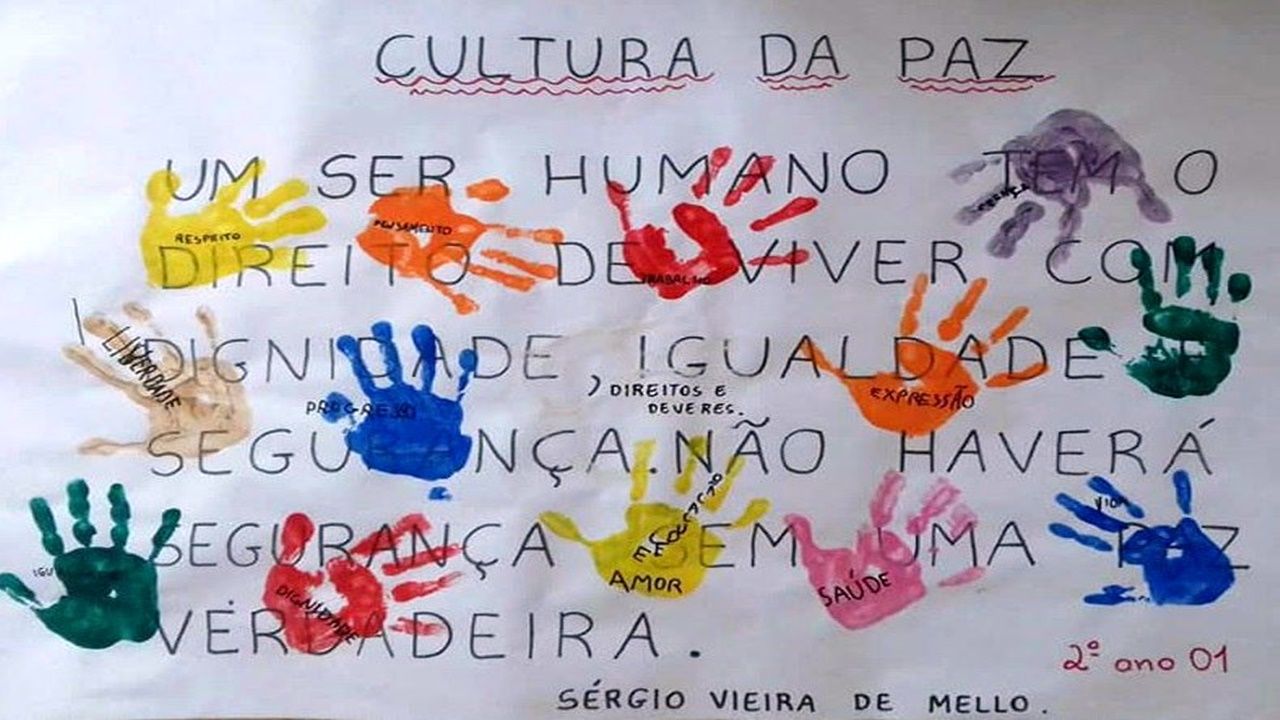 CULTURA DA PAZ
UM SER HUMANO TEM O
RESPEITO
PENSAMENTO
DIREITO DE VIVER COM
TRABALHO
DIGNIDADE, IGUALDADE E
LIVERDADE
PROGRESSO
, DIREITOS E
DEVERES.
EXPRESSÃO
SEGURANÇA. NÃO HAVERÁ
SEGURANÇA SEM UMA PAZ
EDUCAÇÃO
VIDA
IGU
DIGNIDADE
E
AMOR
SAÚDE
VERDADEIRA.
2º ano 01
SÉRGIO VIEIRA DE MELLO.